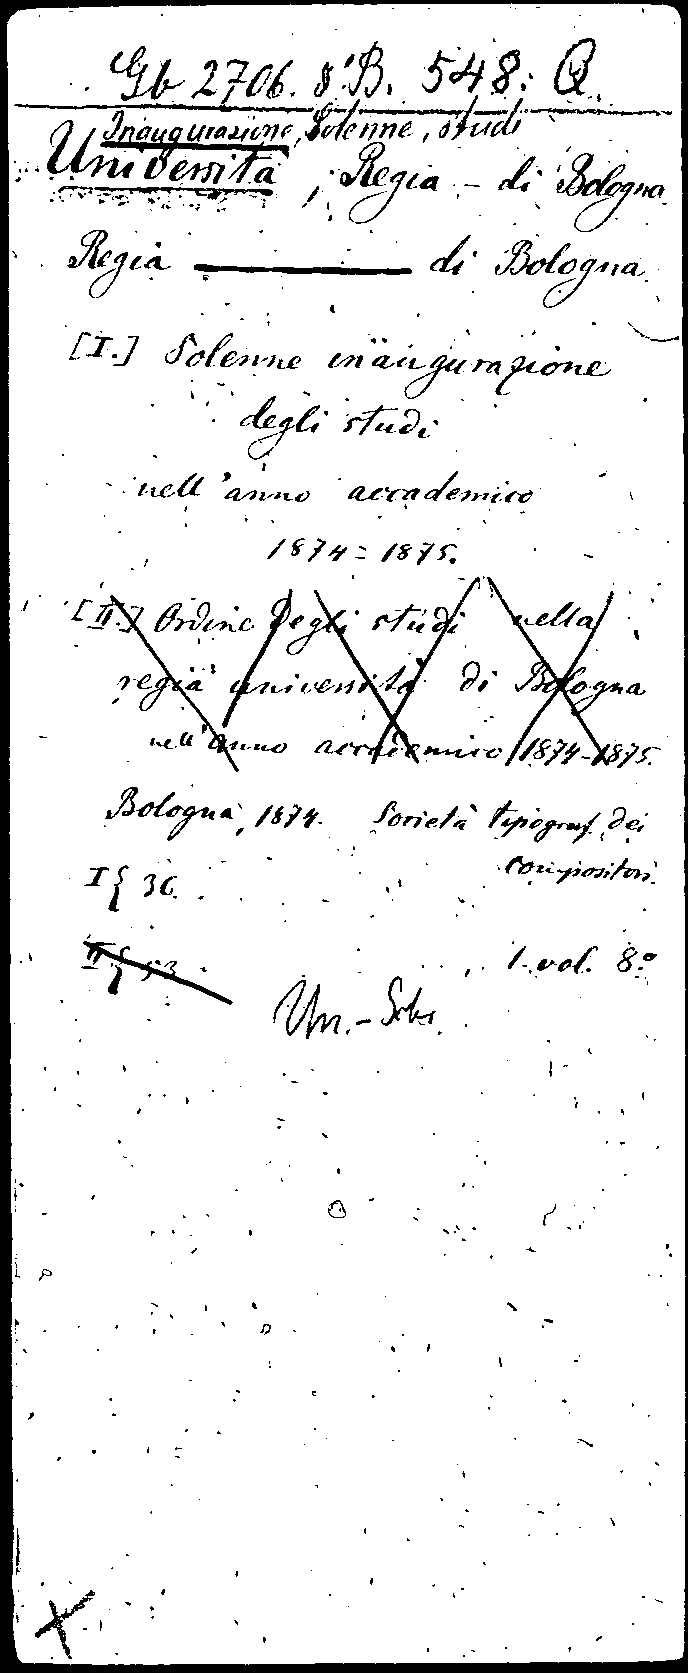 Gb 2706. 8° B. 548: Q.
Inaugurazione, Solenne, studi
Università, Regia – di Bologna
Regia ——— di Bologna.
[I.] Solenne inaugurazione
degli studi
nell'anno accademico
1874=1875.
[II.] Ordine degli studi nella
regia università di Bologna
nell'anno accademico 1874-1875.
Bologna, 1874. Società tipograf. dei
compositori.
I § 36.
II § 53.
1. vol. 8.°
Un.-Schr.